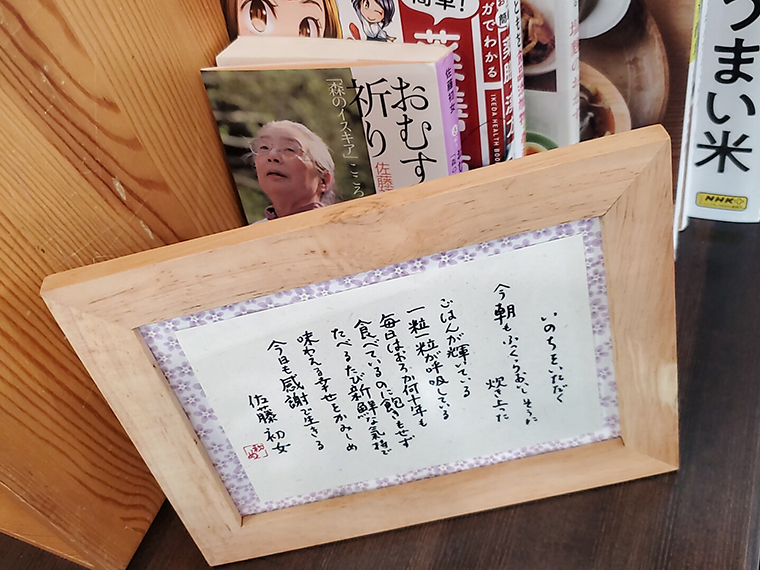 簡単!
がでわかる
薬膳
IKEDA HEALTH BOO
うまい米
NHK
佐藤初女
おむす
祈り
「森のイスキア」こころ
佐藤
いのちをいただく
今朝もふっくらおいしそうに
炊き上った
ごはんが輝いている
一粒一粒が呼吸している
毎日はおろか何十年も
食べているのに飽きもせず
たべるたび新鮮な気持で
味わえる幸せをかみしめ
今日も感謝で生きる
佐藤初女